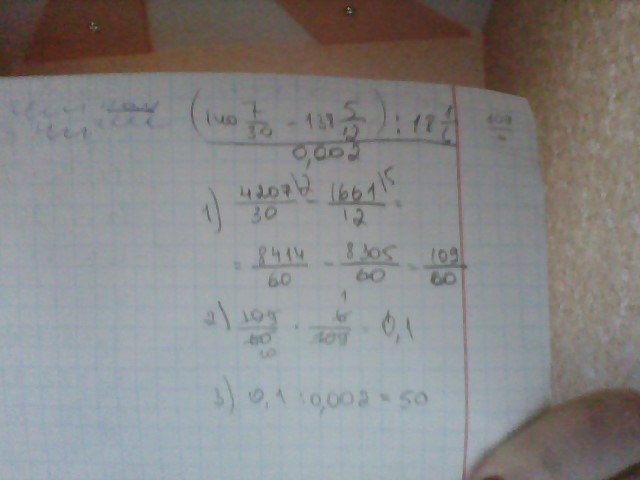 (140 7/30 - 138 5/12) : 18 1/6
0,002
1) 4207/30 \2 - 1661/12 \5 =
= 8414/60 - 8305/60 = 109/60
2) 109/60 10 · 6/109 1 = 0,1
3) 0,1 : 0,002 = 50